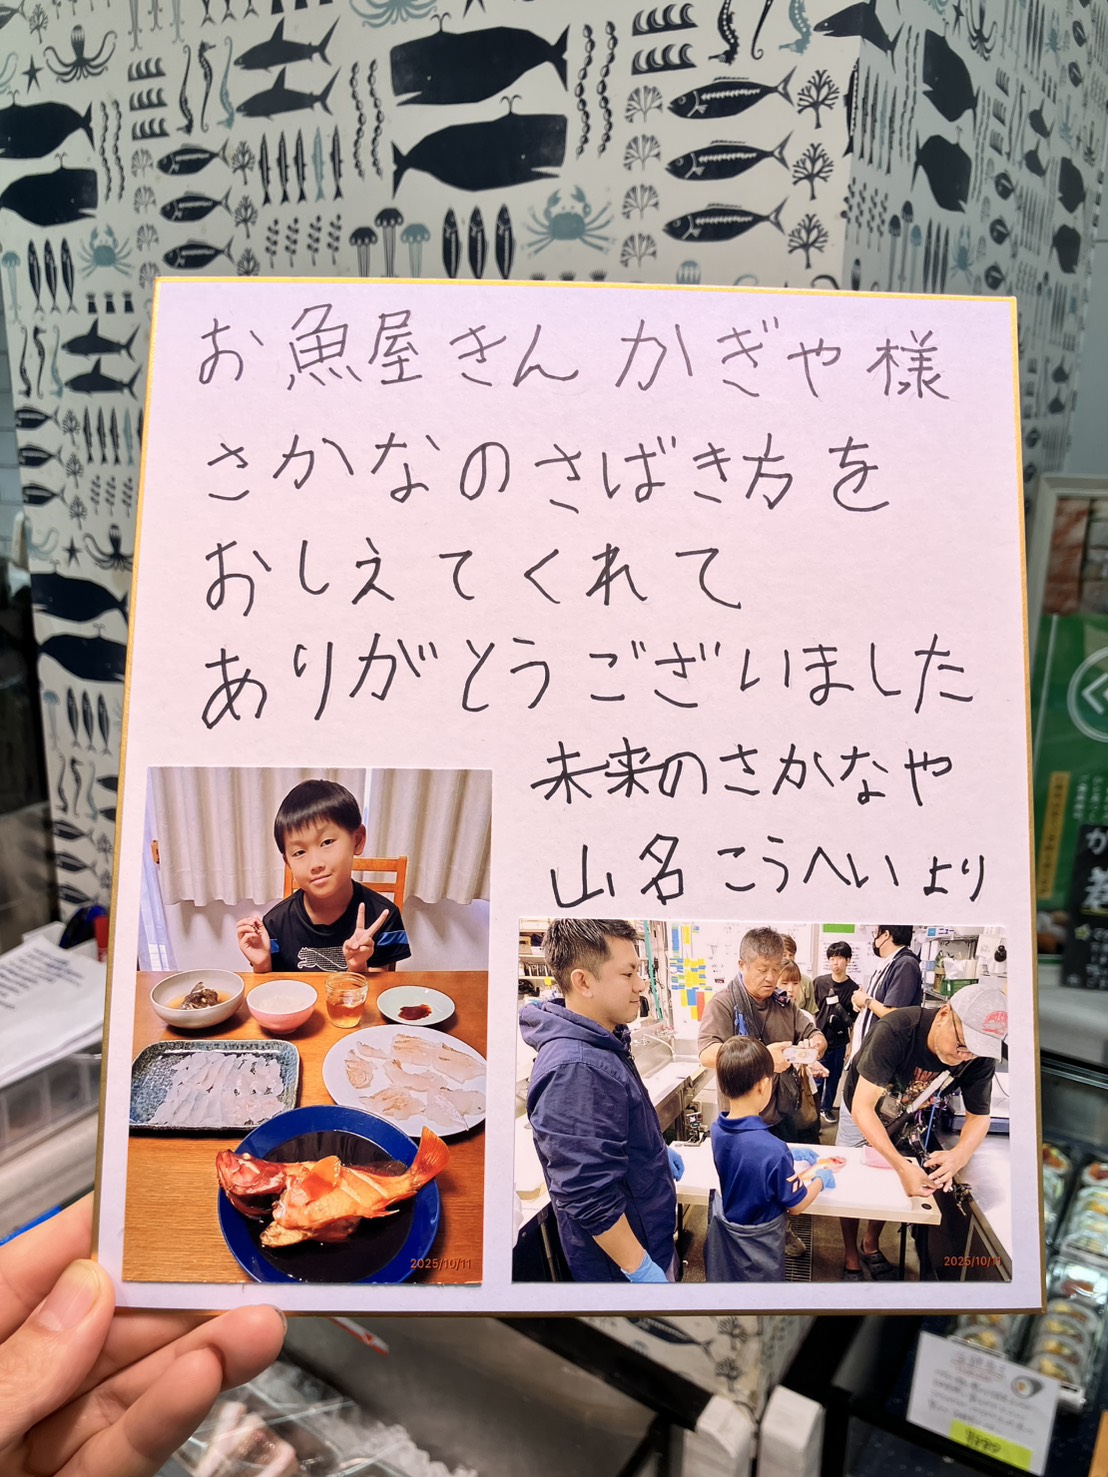 お魚屋さん かぎや様
さかなのさばき方を
おしえてくれて
ありがとうございました
未来のさかなや
山名 こうへいより
2025/10/11
2025/10/11